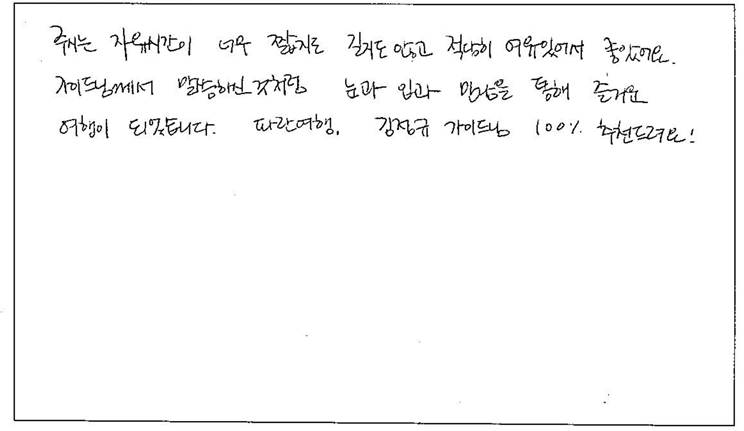 주시는 자유시간이 너무 짧지도 길지도 않고 적당히 여유있어서 좋았어요.
가이드님께서 말씀하신 것처럼 눈과 입과 만남을 통해 즐거운
여행이 되었습니다. 파란여행, 김정규 가이드님 100% 추천드려요!